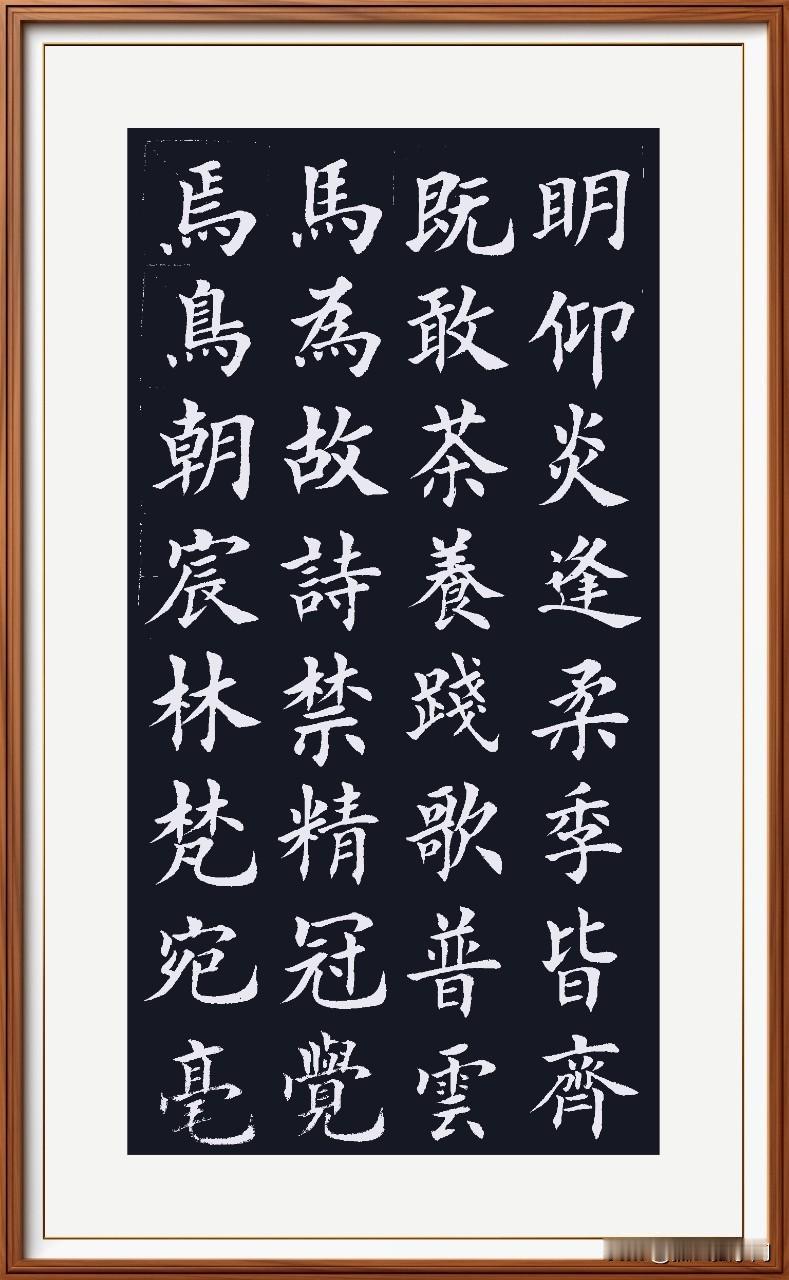 明仰炎逢柔季皆齊
既敢茶養踐歌普雲
馬為故詩禁精冠覺
焉鳥朝宸林梵宛毫